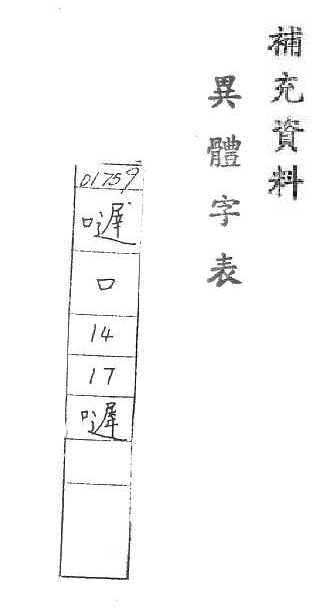 補充資料
異體字表
01759
口
14
17